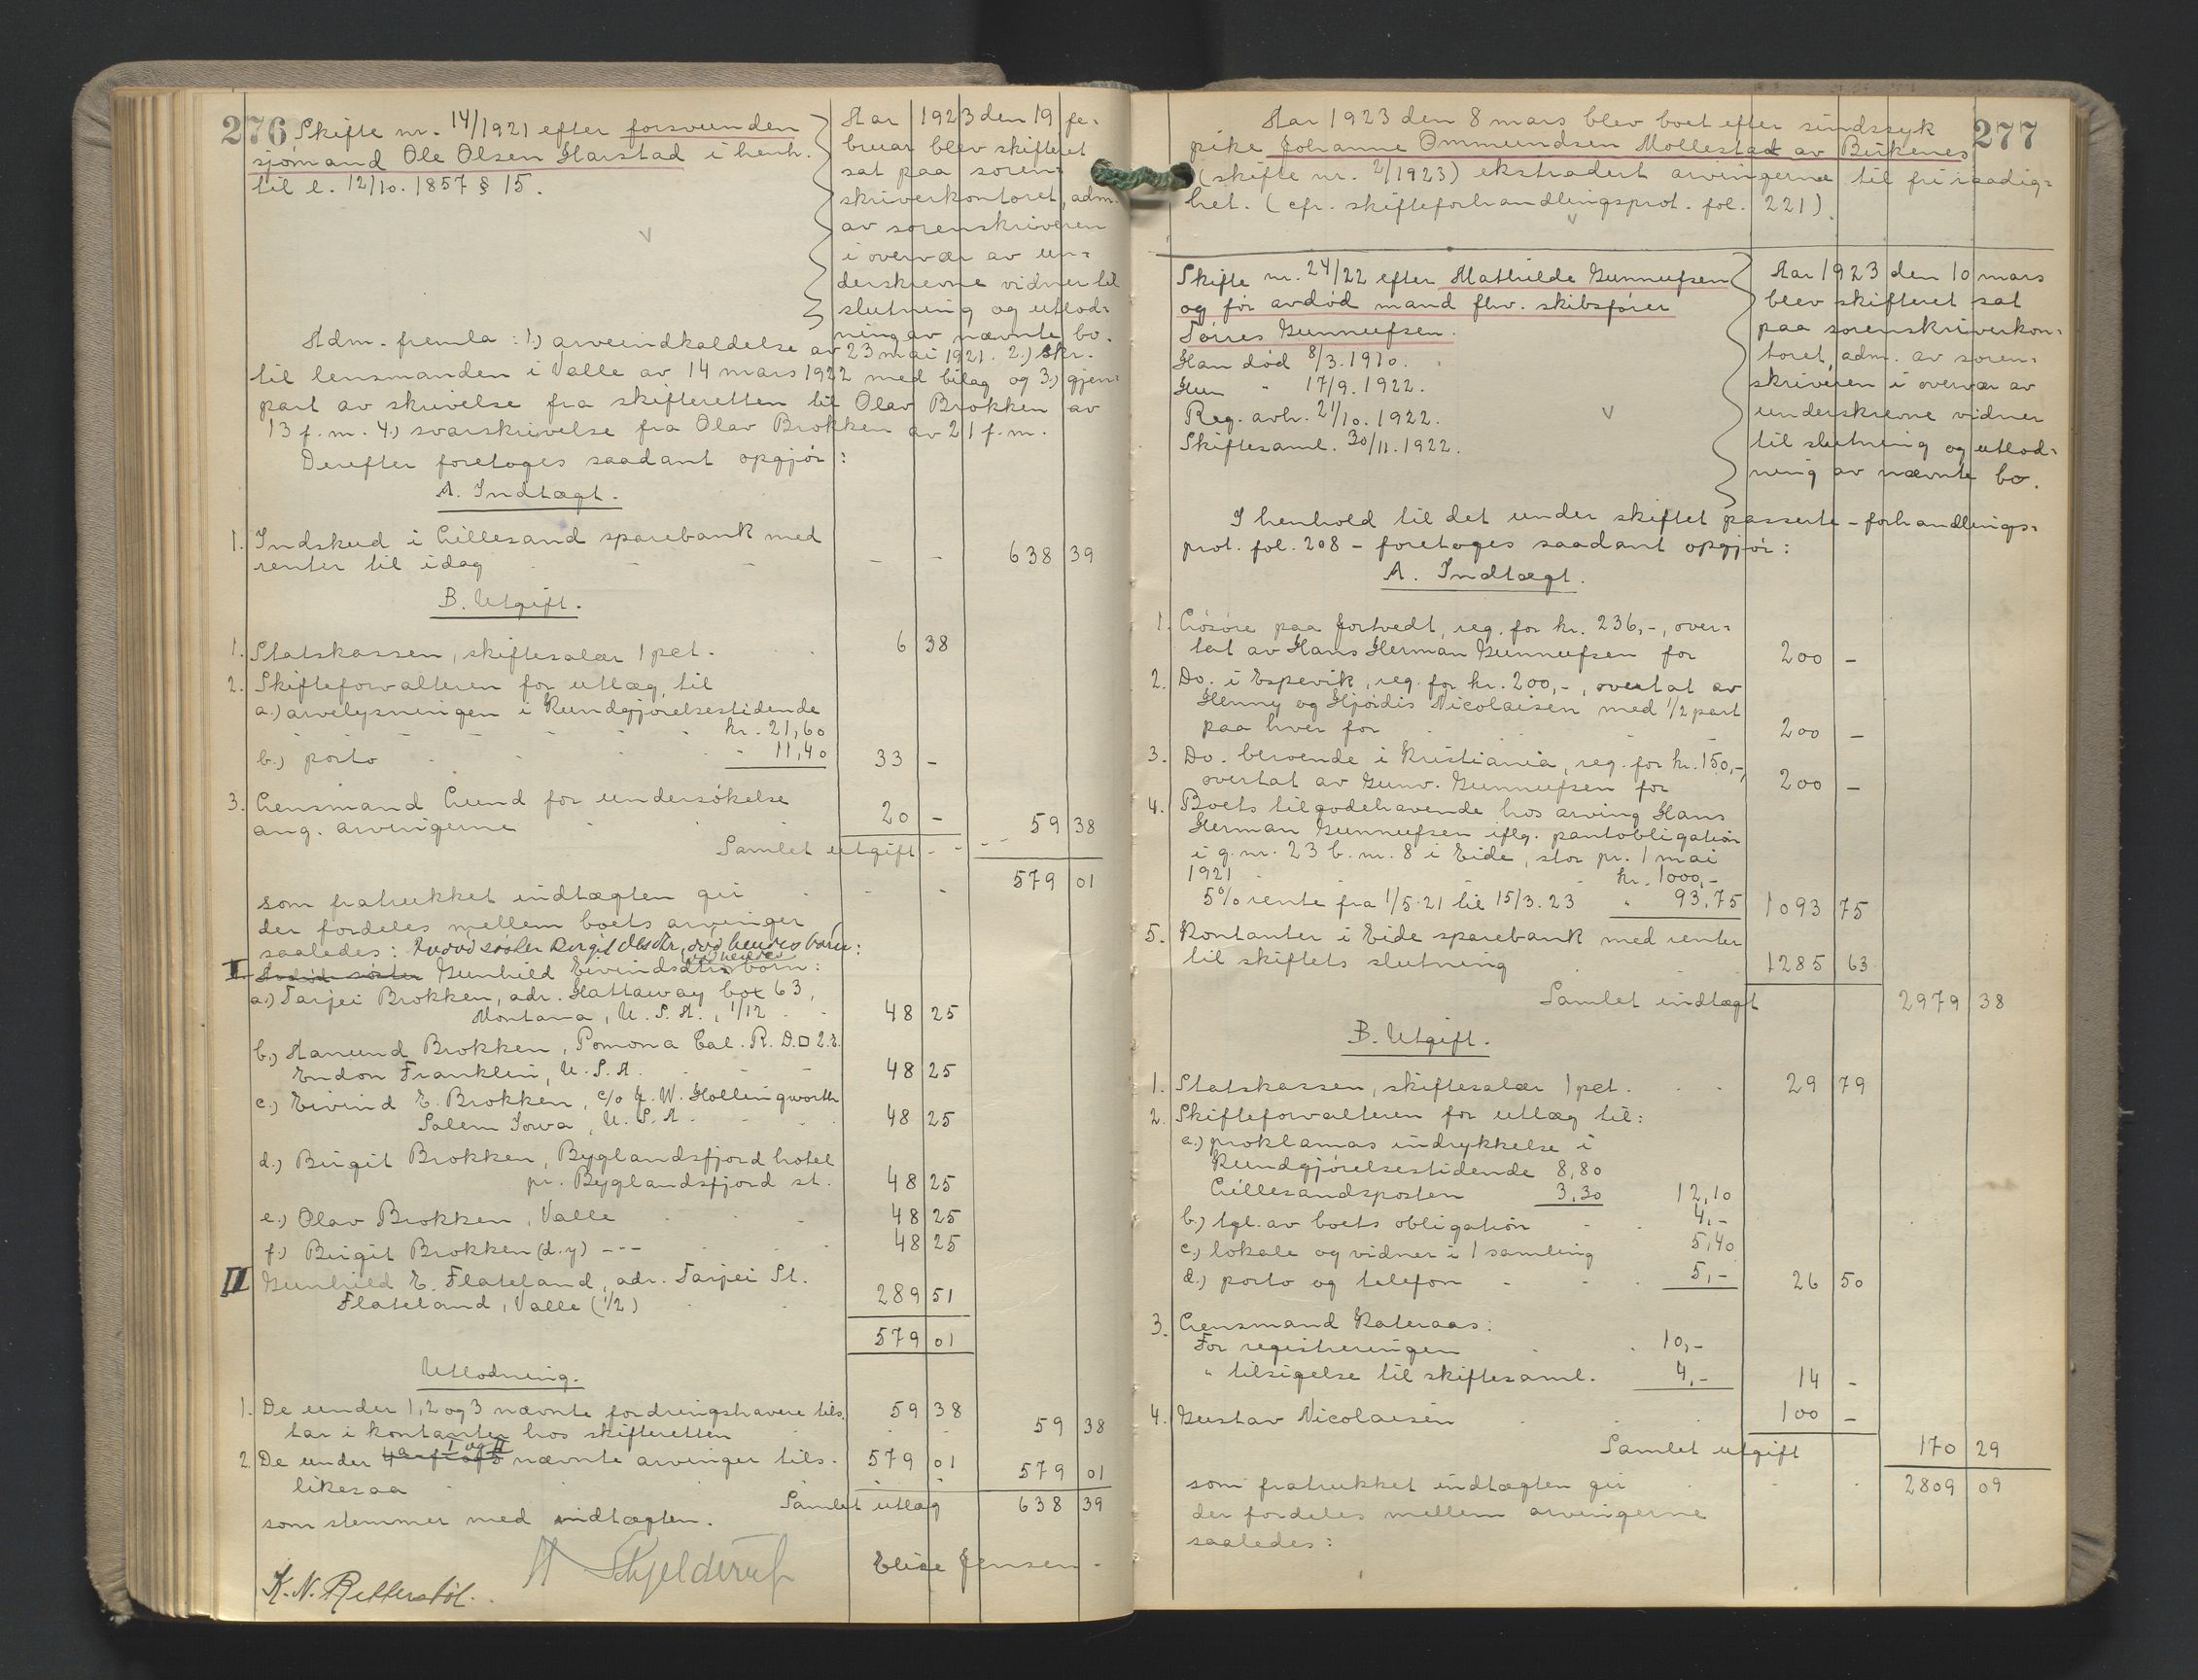 276
Skifte nr. 14/1921 efter forsvunden
sjømand Ole Olsen Harstad i henh.
til l. 12/10. 1857 § 15.
Aar 1923 den 19 fe-
bruar blev skifteret
sat paa soren-
skriverkontoret, adm.
av sorenskriveren
i overvær av un-
derskrevne vidner til
slutning og utlod-
ning av nævnte bo.
Adm. fremla: 1.) arveindkaldelse av 23 mai 1921. 2.) skr.
til lensmanden i Valle av 14 mars 1922 med bilag og 3.) gjen-
part av skrivelse fra skifteretten til Olav Brokken av
13 f.m. 4.) svarskrivelse fra Olav Brokken av 21 f.m.
Derefter foretoges saadant opgjør:
A. Indtægt.
1. Indskud i Lillesand sparebank med
renter til idag - - - - 638 39
B. Utgift.
1. Statskassen, skiftesalær 1 pct. 6 38
2. Skifteforvalteren for utlæg til
a.) arvelysningen i Kundgjørelsestidende
kr. 21,60
b.) porto - 11,40 33 -
3. Lensmand Lund for undersøkelse
ang. arvingerne 20 - 59 38
Samlet utgift - - -
som fratrukket indtægten gir 579 01
der fordeles mellem boets arvinger
saaledes: Avdød søster Birgit Olsdtr, ved hendes børn:
I Avdød søster Gunhild Eivindsdtrs ved hendes børn:
a.) Tarjei Brokken, adr. Hattaway box 63,
Montana, U.S.A., 1/12 48 25
b.) Aanund Brokken, Pomona Cal. R.D. □ 2.8.
Endon Franklin, U.S.A. 48 25
c.) Eivind E. Brokken, c/o J. W. Hollingworth
Salem Iowa, U.S.A. 48 25
d.) Birgit Brokken, Byglandsfjord hotel
pr. Byglandsfjord st. 48 25
e.) Olav Brokken, Valle 48 25
f.) Birgit Brokken (d.y) --- 48 25
II Gunhild E. Flateland, adr. Tarjei St.
Flateland, Valle (1/2) 289 51
579 01
Utlodning.
1. De under 1, 2 og 3 nævnte fordringshavere tils.
tar i kontanter hos skifteretten 59 38 59 38
2. De under 4 a-f og 5 I og II nævnte arvinger tils.
likesaa 579 01 579 01
Samlet utlæg 638 39
som stemmer med indtægten.
K. N. Retterstøl. A Skjelderup Elise Jensen -
277
Aar 1923 den 8 mars blev boet efter sindssyk
pike Johanne Ommundsen Mollestad av Birkenes
(skifte nr. 2/1923) ekstradert arvingerne til fri raadig-
het. (cfr. skifteforhandlingsprot. fol. 221).
Skifte nr. 24/22 efter Mathilde Gunnufsen
og før avdød mand fhv. skibsfører
Tørres Gunnufsen.
Han død 8/3. 1910.
Hun " 17/9. 1922.
Reg. avh. 21/10. 1922.
Skiftesaml. 30/11. 1922.
Aar 1923 den 10 mars
blev skifteret sat
paa sorenskriverkon-
toret, adm. av soren-
skriveren i overvær av
underskrevne vidner
til slutning og utlod-
ning av nævnte bo.
I henhold til det under skiftet passerte - forhandlings-
prot. fol. 208 - foretoges saadant opgjør:
A. Indtægt.
1. Løsøre paa Jortvedt, reg. for kr. 236,-, over-
tat av Hans Herman Gunnufsen for 200 -
2. Do. i Espevik, reg. for kr. 200,-, overtat av
Henny og Hjørdis Nicolaisen med 1/2 part
paa hver for 200 -
3. Do. beroende i Kristiania, reg. for kr. 150,-,
overtat av Gunv. Gunnufsen for 200 -
4. Boets tilgodehavende hos arving Hans
Herman Gunnufsen iflg. pantobligation
i g.nr. 23 b.nr. 8 i Eide, stor pr. 1 mai
1921 kr. 1000,-
5% rente fra 1/5.21 til 15/3.23 " 93,75 1093 75
5. Kontanter i Eide sparebank med renter
til skiftets slutning 1285 63
Samlet indtægt 2979 38
B. Utgift.
1. Statskassen, skiftesalær 1 pct. 29 79
2. Skifteforvalteren for utlæg til:
a.) proklamas indrykkelse i
Kundgjørelsestidende 8,80
Lillesandsposten 3,30 12,10
b.) tgl. av boets obligation 4,-
c.) lokale og vidner i 1 samling 5,40
d.) porto og telefon 5,- 26 50
3. Lensmand Kateraas:
For registreringen 10,-
" tilsigelse til skiftesaml. 4,- 14 -
4. Gustav Nicolaisen 100 -
Samlet utgift 170 29
som fratrukket indtægten gir 2809 09
der fordeles mellem arvingerne
saaledes: